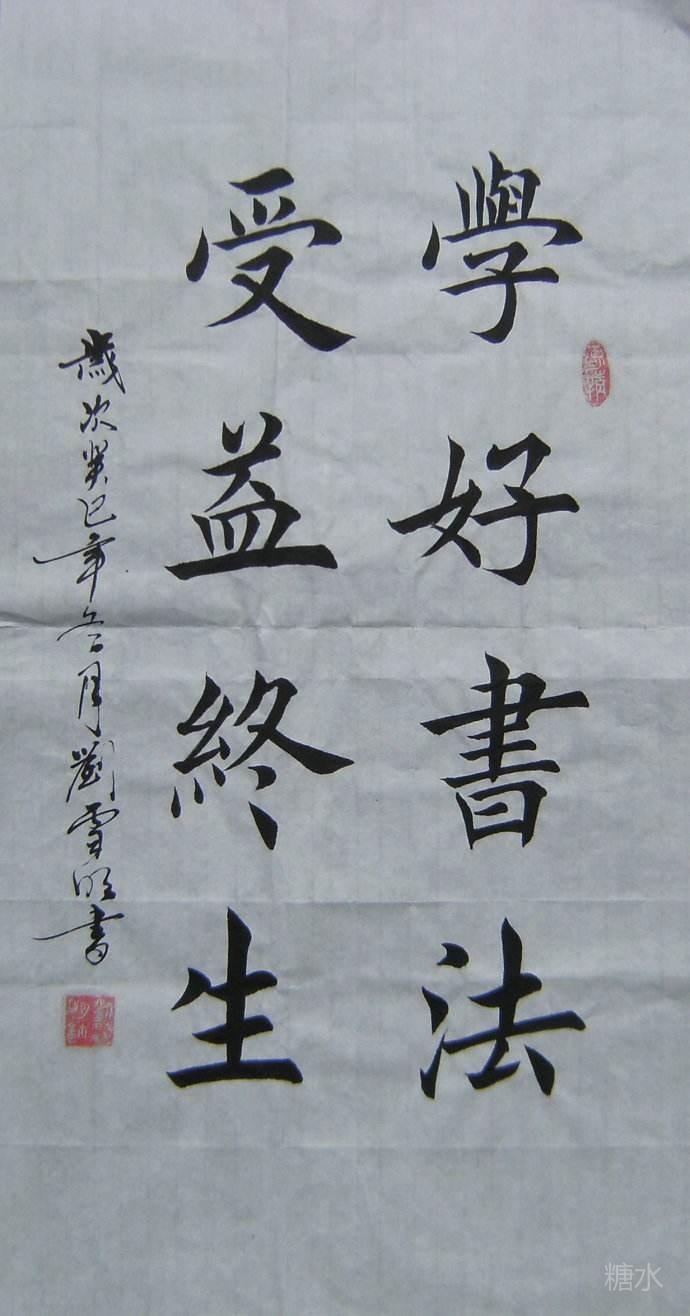 學好書法
受益終生
歲次癸巳年冬月劉雪明書
糖水